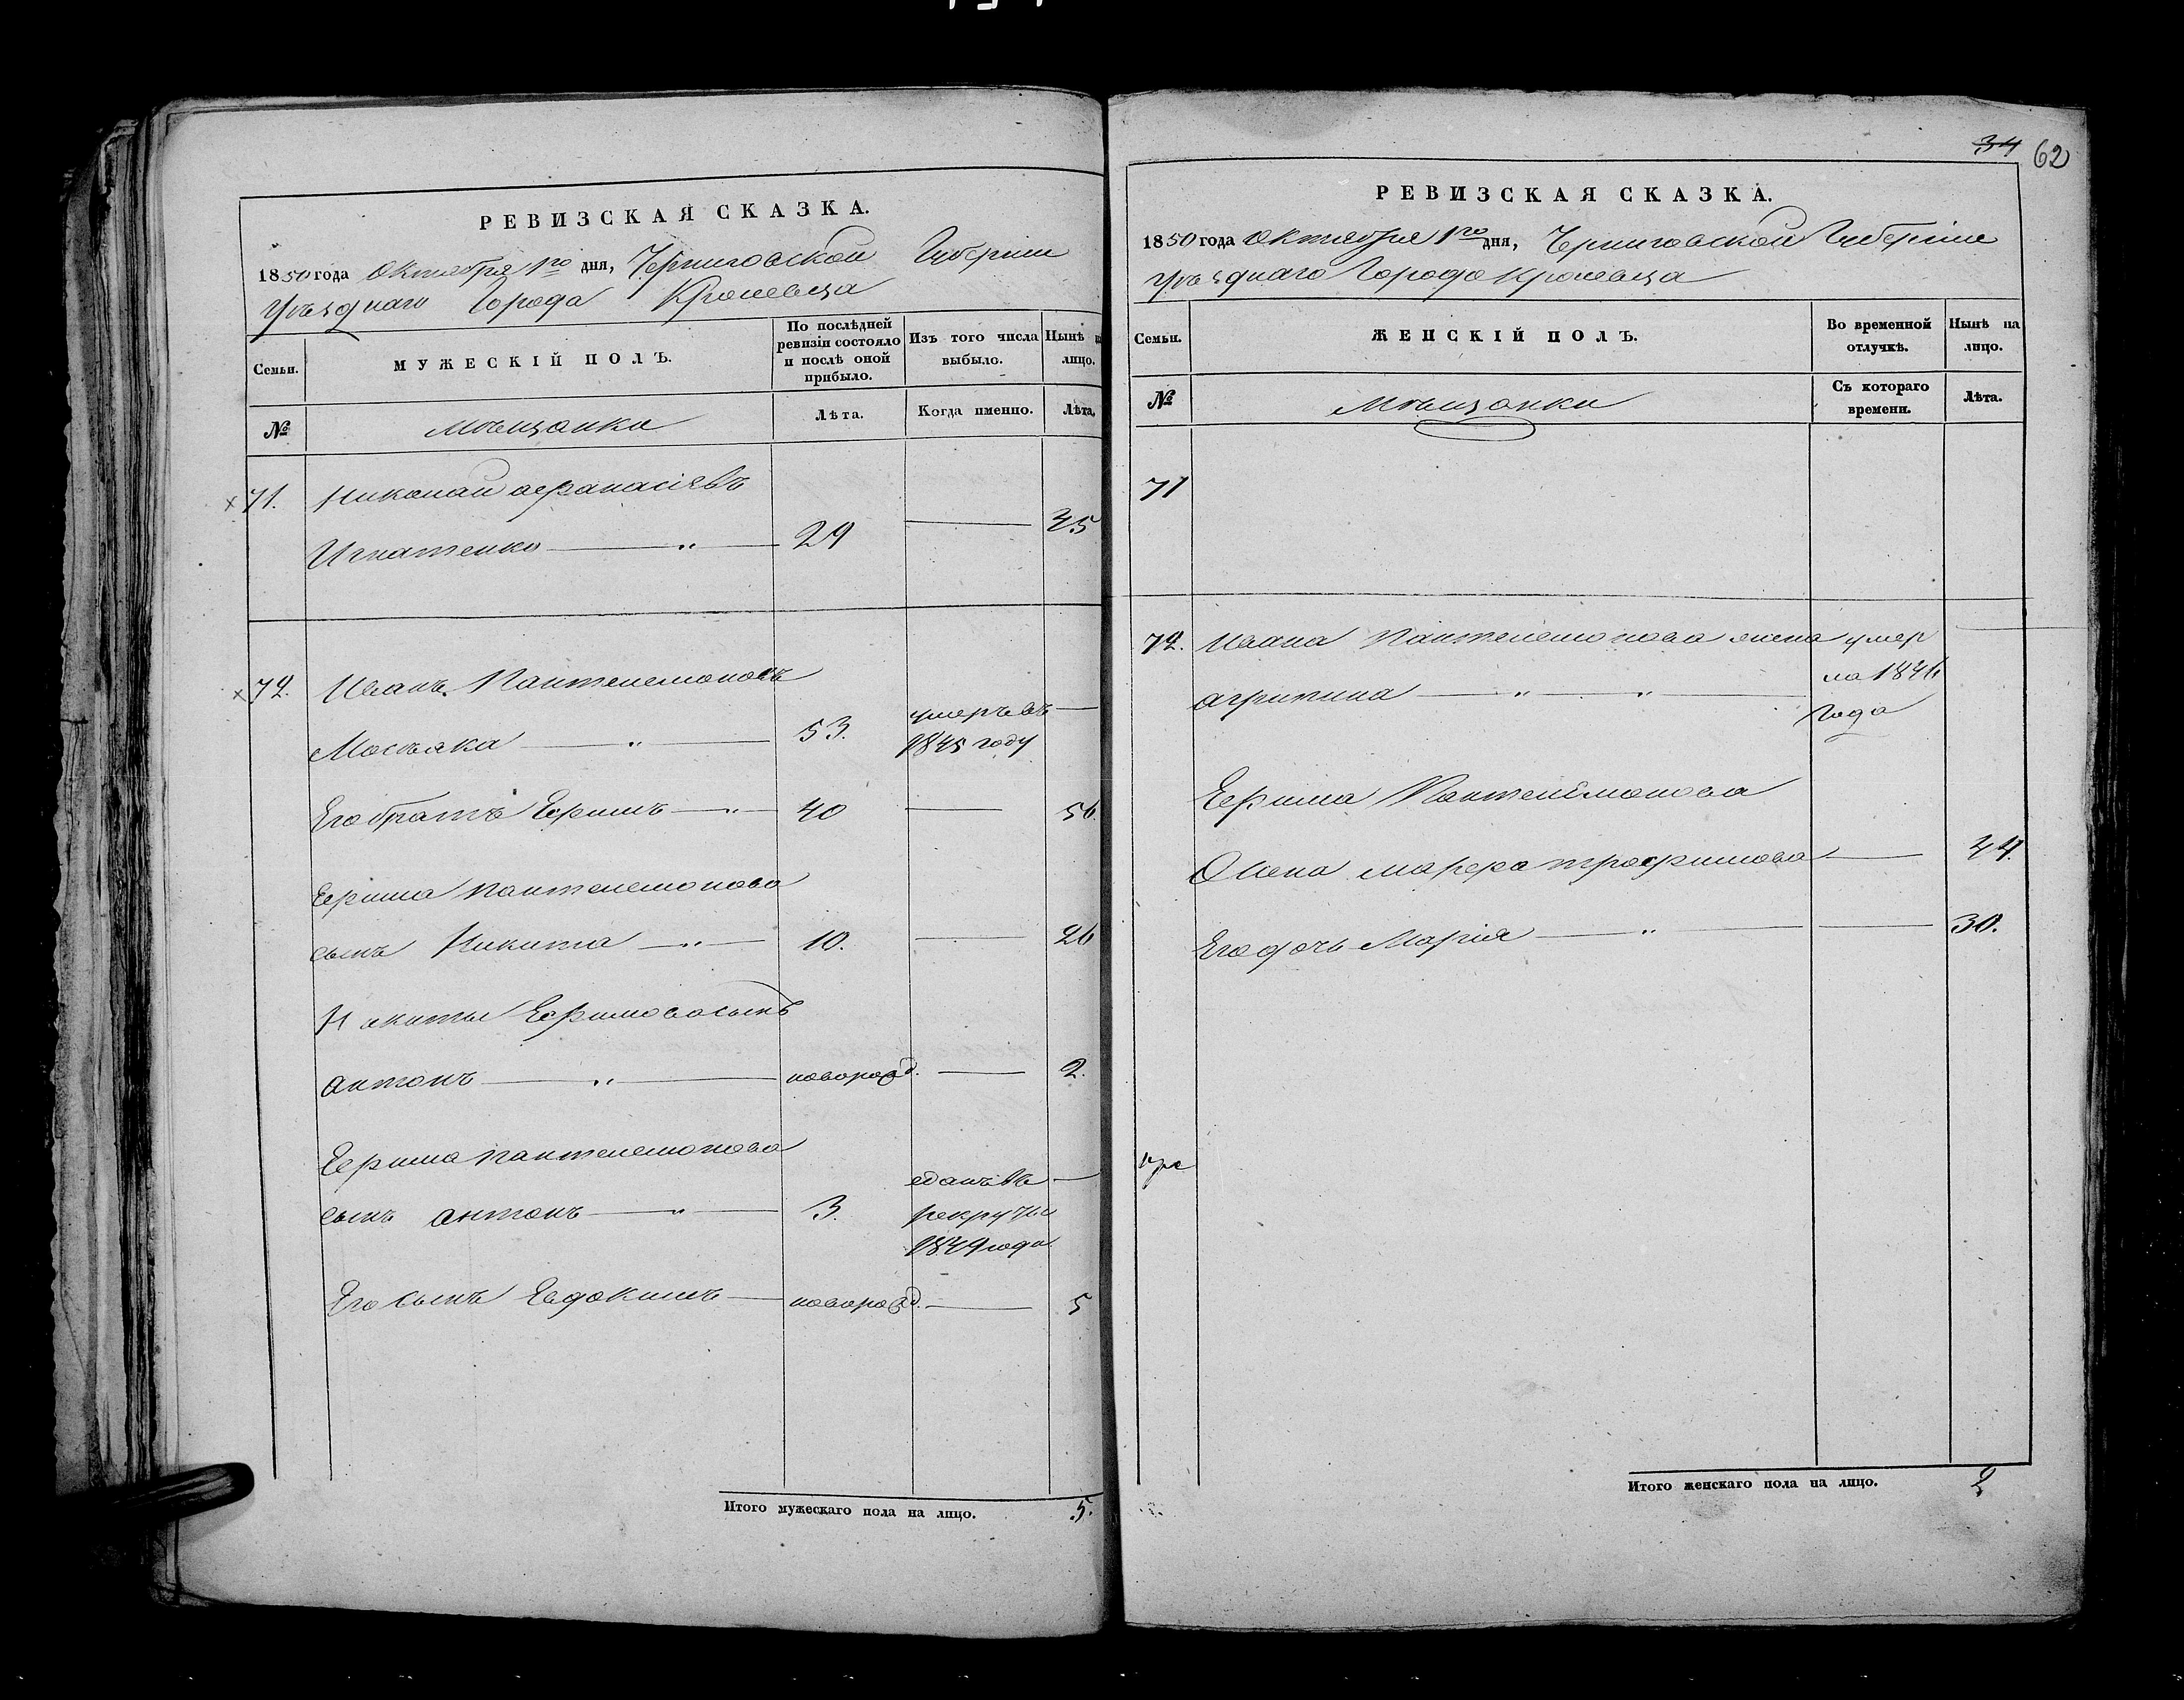 РЕВИЗСКАЯ СКАЗКА.
1850 года Октября 1го дня, Черниговской Губерніи
Уѣзднаго Города Кролевца
Семьи.
МУЖЕСКІЙ ПОЛЪ.
По послѣдней ревизіи состояло и послѣ оной прибыло.
Изъ того числа выбыло.
Нынѣ на лицо.
№
Мѣщанки
Лѣта.
Когда именно.
Лѣта.
71. Николай Афанасіевъ
Игнатенко — " — 29 — 45
72. Иванъ Пантелемоновъ
53. умеръ въ —
1845 году
Его братъ Ефимъ — " — 40 — 56
Ефима Пантелемонова
сынъ Никита — " — 10. — 26
Никиты Ефимова сынъ
Антонъ — " — новорожд. — 2.
Ефима Пантелемонова
сынъ Антонъ — " — 3. сданъ въ —
рекруты
1849 года
Его сынъ Евдокимъ — новорожд. — 5
Итого мужескаго пола на лицо. 5.
34 62
РЕВИЗСКАЯ СКАЗКА.
1850 года Октября 1го дня, Черниговской Губерніи
Уѣзднаго Города Кролевца
Семьи.
ЖЕНСКІЙ ПОЛЪ.
Во временной отлучкѣ.
Нынѣ на лицо.
№
Мѣщанки
Съ котораго времени.
Лѣта.
71
72. Ивана Пантелемонова жена умер
ла 1846
Агрипина — " — " —
года
Ефима Пантелемонова
жена Марфа Трофимова — 44.
Его дочь Марія — " — 30.
Итого женскаго пола на лицо. 2